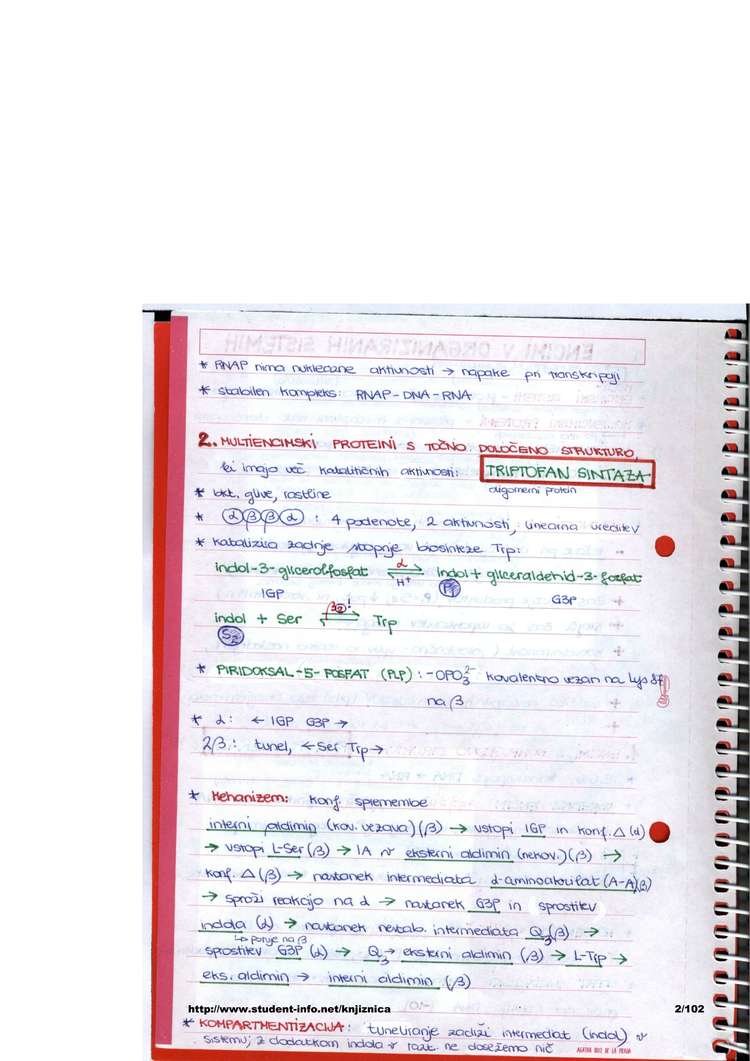 * RNAP nima nukleazne aktivnosti → napake pri transkripciji
* stabilen kompleks: RNAP-DNA-RNA
2. MULTIENCIMSKI PROTEINI S TOČNO DOLOČENO STRUKTURO,
ki imajo več katalitičnih aktivnosti: TRIPTOFAN SINTAZA
oligomerni protein
* bkt, glive, rastline
* αββα : 4 podenote, 2 aktivnosti, linearna ureditev
* katalizira zadnje stopnje biosinteze Trp:
indol-3-glicerolfosfat α ⇌ H⁺ indol + gliceraldehid-3-fosfat
IGP P₁ G3P
indol + Ser ⇌ Trp
S₂
* PIRIDOKSAL-5-FOSFAT (PLP): -OPO₃²⁻ kovalentno vezan na Lys 87
na β
* α: ← IGP G3P →
2β: tunel, ← Ser Trp →
* Mehanizem: konf. spremembe
interni aldimin (kov. vezava)(β) → vstopi IGP in konf. Δ (α)
→ vstopi L-Ser (β) → IA v eksterni aldimin (nekov.)(β) →
konf. Δ (β) → nastanek intermediata α-aminoakrilat (A-A)(β)
→ sproži reakcijo na α → nastanek G3P in sprostitev
indola (α) → nastanek nestab. intermediata Q₃(β) →
↳ potuje na β
sprostitev G3P (α) → Q₃ → eksterni aldimin (β) → L-Trp →
eks. aldimin → interni aldimin (β)
http://www.student-info.net/knjiznica 2/102
* KOMPARTMENTIZACIJA: tuneliranje zadrži intermediat (indol) v
sistemu; z dodatkom indola v razt. ne dosežemo nič
AGATHA RUIZ DE LA PRADA